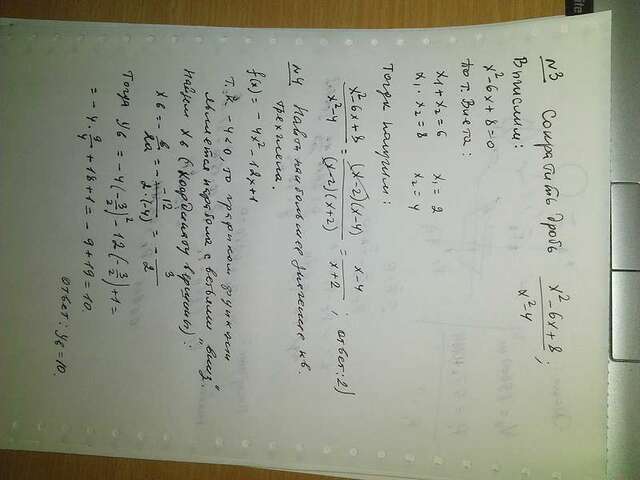 N3 Сократить дробь x²-6x+8 / x²-4 ;
Вычислим:
x²-6x+8=0
по т. Виета:
x₁+x₂=6 x₁=2
x₁·x₂=8 x₂=4
Тогда получим:
x²-6x+8 / x²-4 = (x-2)(x-4) / (x-2)(x+2) = x-4 / x+2 ; ответ: 2)
N4 Найти наибольшее значение кв.
трехчлена.
f(x)=-4x²-12x+1
т.к. -4<0, то графиком функции
является парабола с ветвями „вниз".
Найдем xв (координату вершины):
xв = -b/2a = - -12 / 2·(-4) = - 3/2
Тогда yв = -4(-3/2)²-12(-3/2)+1=
= -4·9/4+18+1=-9+19=10.
Ответ: yв=10.